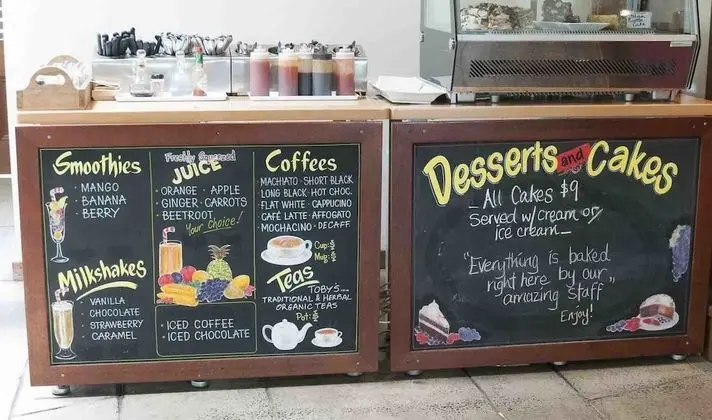 Smoothies
· MANGO
· BANANA
· BERRY
Milkshakes
· VANILLA
· CHOCOLATE
· STRAWBERRY
· CARAMEL
Freshly Squeezed
JUICE
· ORANGE · APPLE
· GINGER · CARROTS
· BEETROOT
Your Choice!
· ICED COFFEE
· ICED CHOCOLATE
Coffees
MACHIATO · SHORT BLACK
LONG BLACK · HOT CHOC.
FLAT WHITE · CAPPUCINO
CAFÉ LATTE · AFFOGATO
MOCHACINO · DECAFF
Cup:
Mug:
Teas
TOBY'S
TRADITIONAL & HERBAL
ORGANIC TEAS
Pot:
Desserts and Cakes
All Cakes $9
Served w/cream or
ice cream
"Everything is baked
right here by our
amazing staff"
Enjoy!